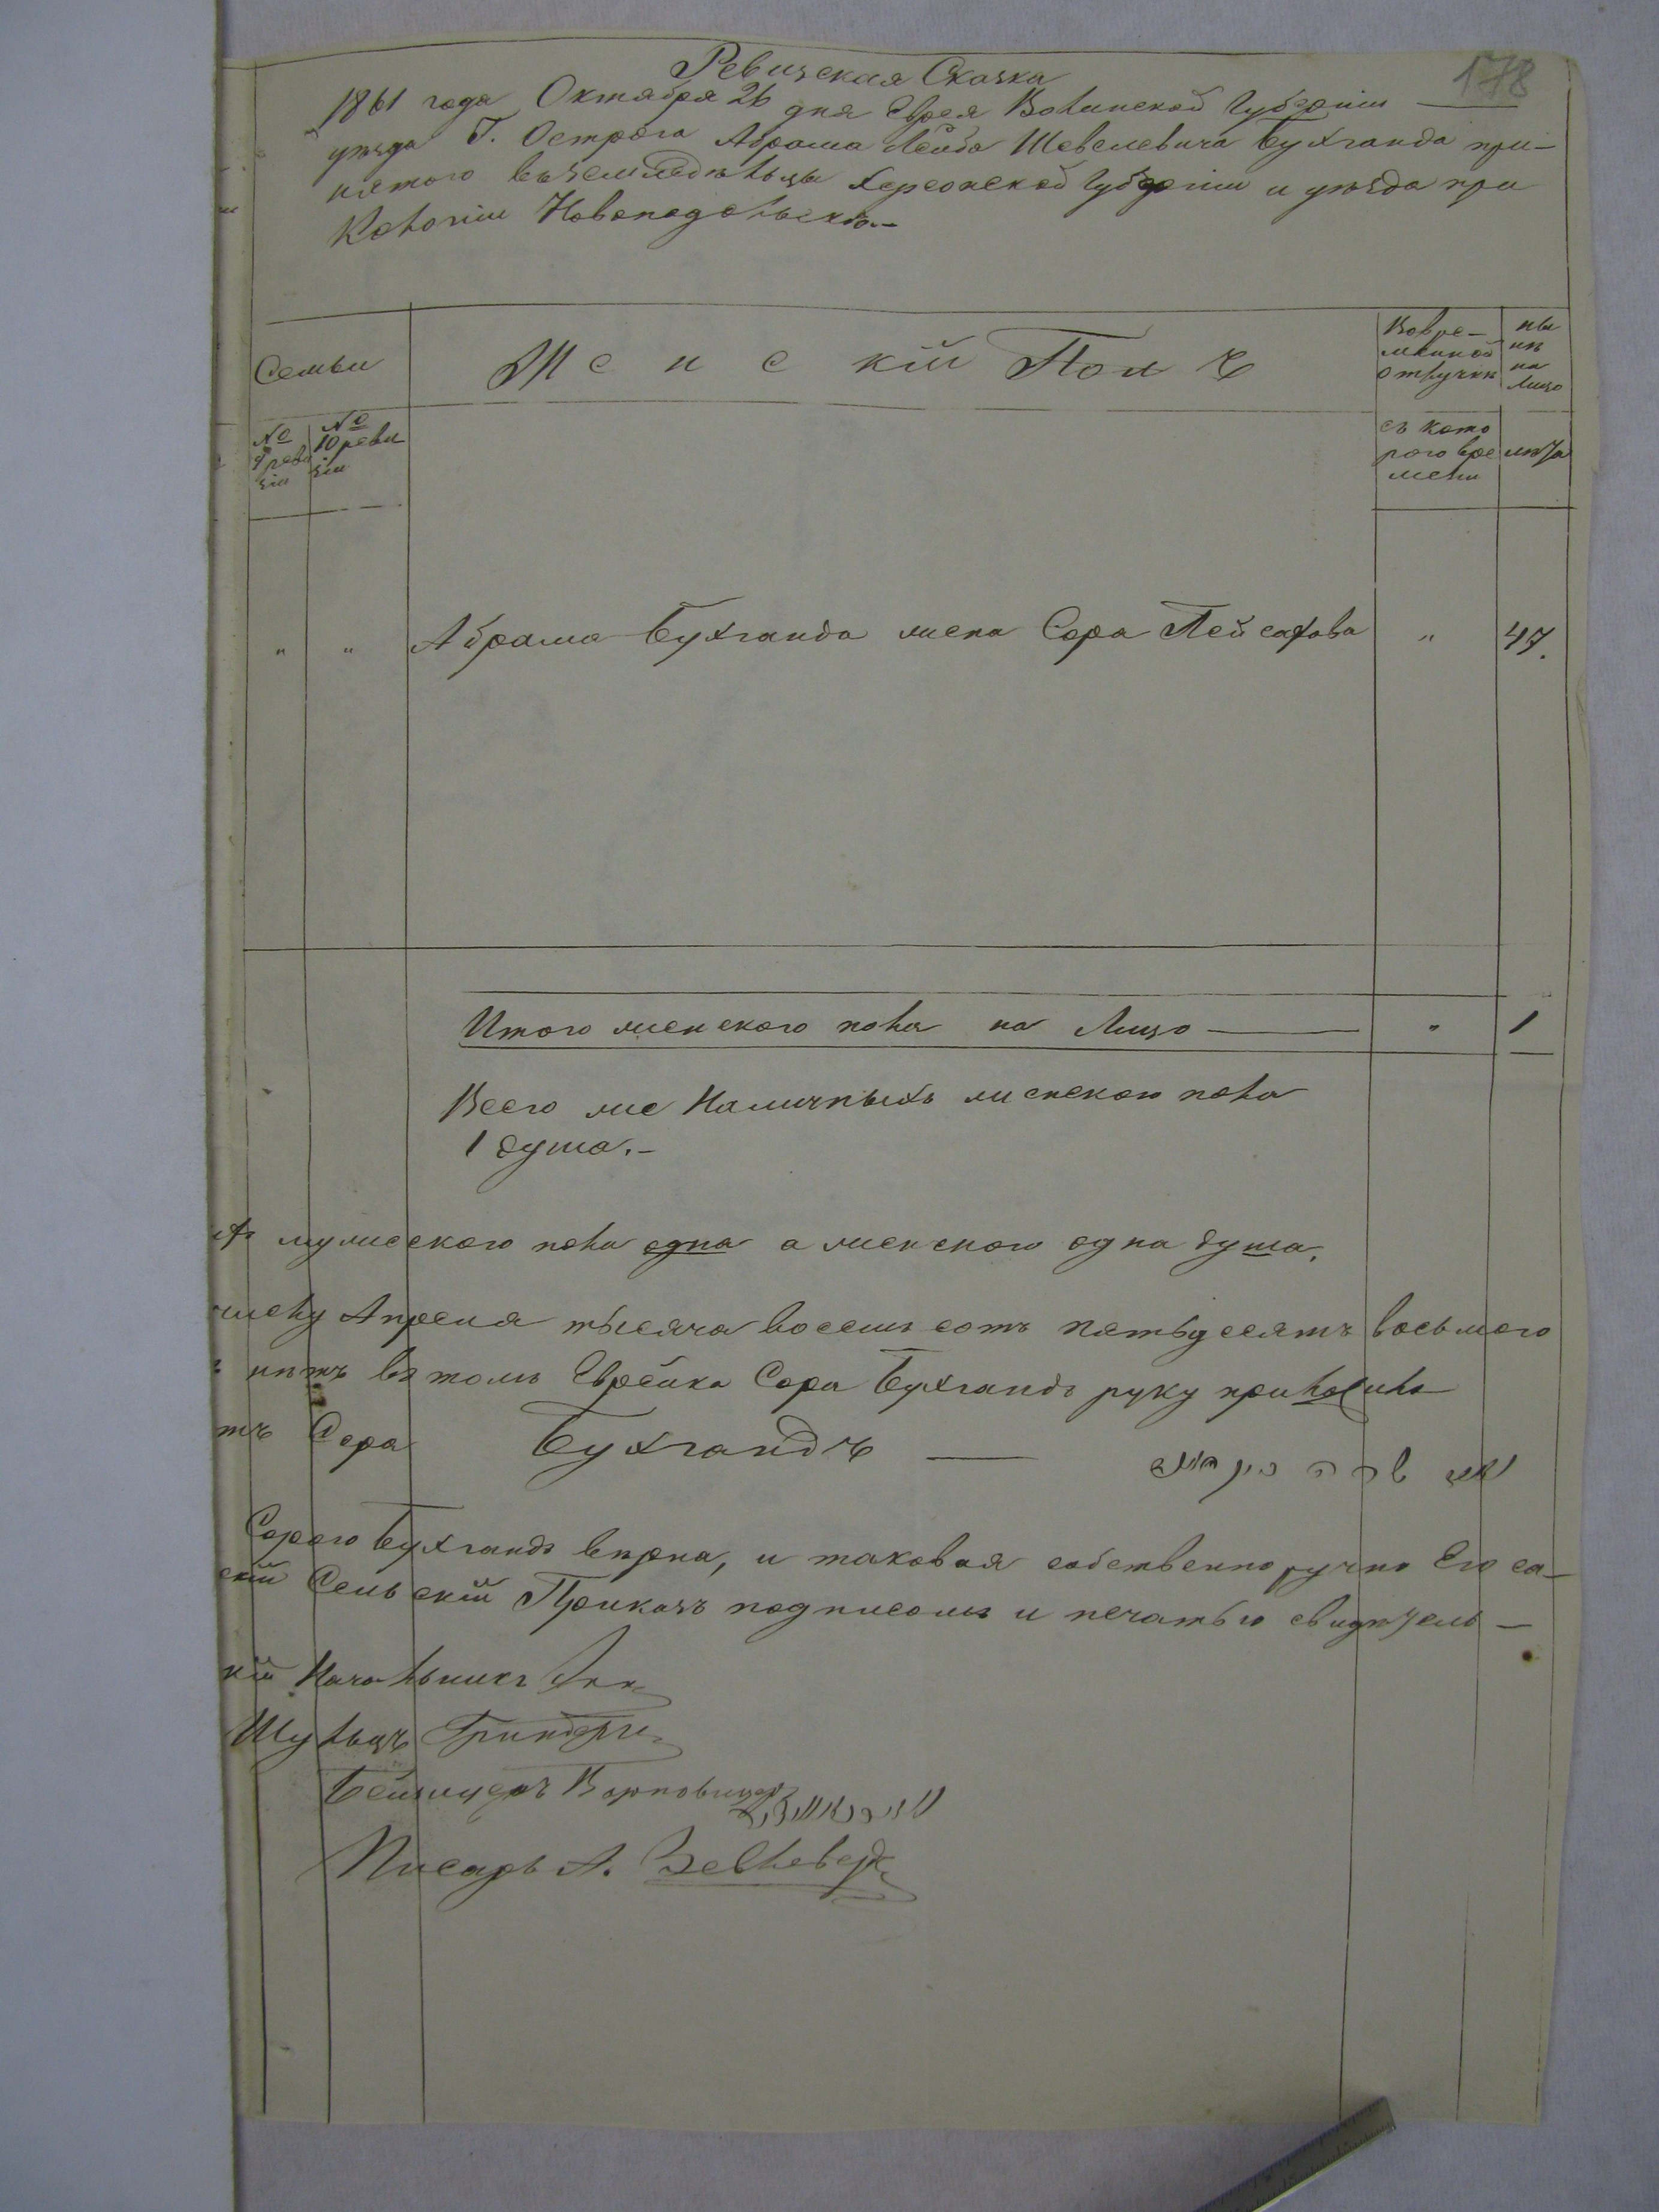 178
Ревизская Сказка
1861 года Октября 26 дня Еврея Волинской Губерніи
уѣзда Г. Острога Абрама Лейба Шевелевича Бухганда при-
нятого въ земледѣльцы Херсонской Губерніи и уѣзда при
Колоніи Новоподольскѣ.-
Семьи
Женскій Полъ
Вовре-
менной
отлучки
ны
нѣ
на
Лицо
№
9 реви
зіи
№
10 реви
зіи
съ кото
рого вре
мени
лѣта
" " Абрама Бухганда жена Сора Пейсахова " 47.
Итого женского пола на Лицо " 1
Всего же Наличныхъ женского пола
1 душа.-
мужеского пола одна а женского одна душа.
числу Апреля тысяча восемь сотъ пятьдесятъ восьмого
нѣтъ въ томъ Еврейка Сора Бухгандъ руку приложила
тъ Сора Бухгандъ
שרה
Сорою Бухгандъ вѣрна, и таковая собственно ручно Его са-
скій Сельскій Приказъ подписомъ и печатью свидѣтель-
кій Начальникъ
Шульцъ Гринбергъ
Бейзицеръ
Писарь А.